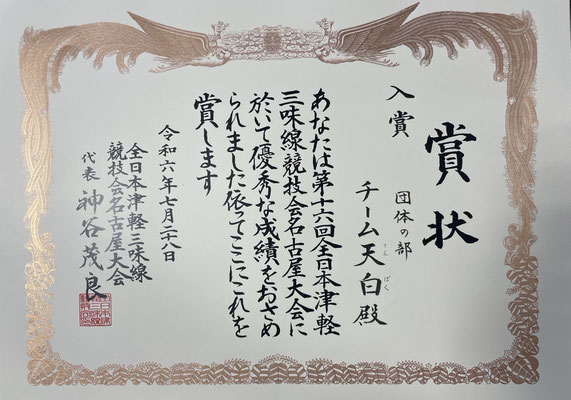 賞状
入賞
団体の部
チーム天白殿
てんぱく
あなたは第十六回全日本津軽
三味線競技会名古屋大会に
於いて優秀な成績をおさめ
られました依ってここにこれを
賞します
令和六年七月二八日
全日本津軽三味線
競技会名古屋大会
代表 神谷茂良